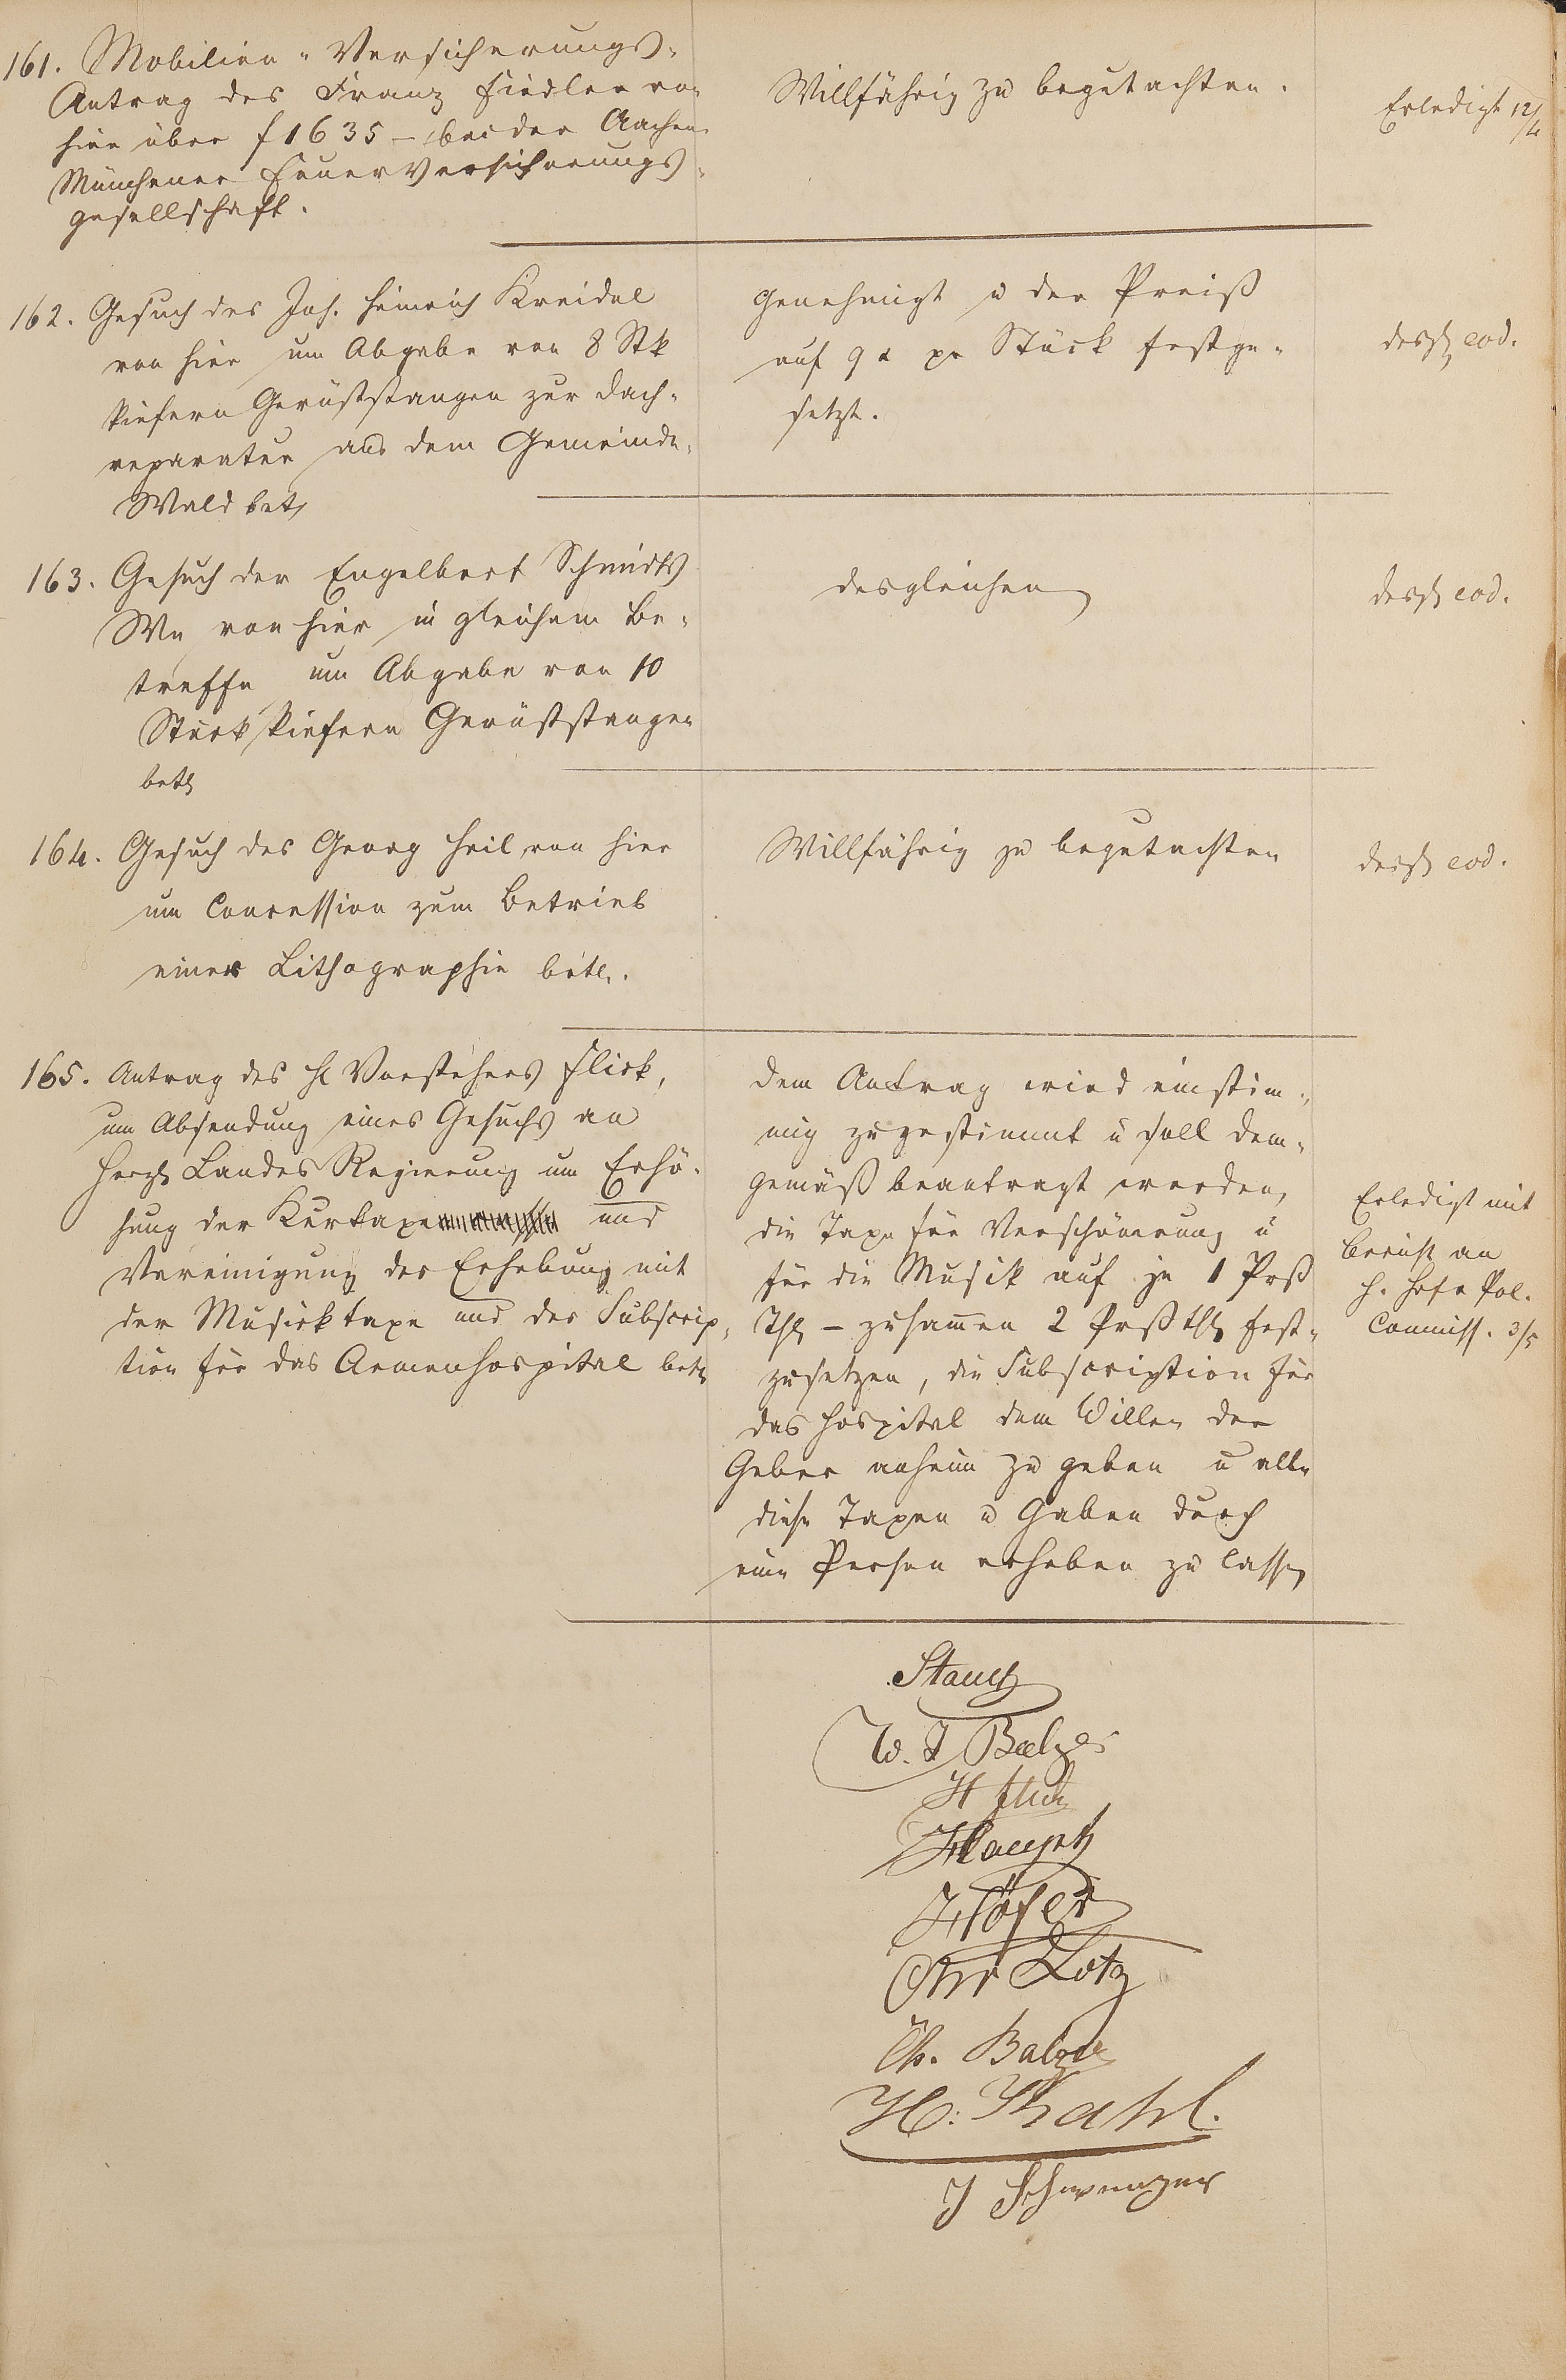 161. Mobilien-Versicherungs-
Antrag des Franz Fiedler von
hier über f 1635 – bei der Aachen-
Münchener Feuerversicherungs-
gesellschaft.
Willfährig zu begutachten.
Erledigt 12/4
162. Gesuch des Joh. Heinrich Kreidel
von hier um Abgabe von 8 Stk
kiefern Gerüststangen zur Dach-
reparatur aus dem Gemeinde-
Wald betr
Genehmigt u der Preiß
auf 9 x pr Stück festge-
setzt.
desgl eod.
163. Gesuch der Engelbert Schmidts
We von hier in gleichem Be-
treffe um Abgabe von 10
Stück kiefern Gerüststangen
betr
desgleichen
desgl eod.
164. Gesuch des Georg Heil von hier
um Concession zum Betrieb
einer Lithographie betr.
Willfährig zu begutachten
desgl eod.
165. Antrag des H Vorstehers Flick,
um Absendung eines Gesuchs an
Herzgl Landes Regierung um Erhö-
hung der Kurtaxe und
Vereinigung der Erhebung mit
der Musicktaxe und der Subscrip-
tion für das Armenhospital betr
Dem Antrag wird einstim-
mig zugestimmt u soll dem-
gemäß beantragt werden,
die Taxe für Verschönerung u
für die Musik auf je 1 Prß
Thl – zusammen 2 Prß Thl fest-
zusetzen, die Subscription für
das Hospital dem Willen der
Geber anheim zu geben u alle
diese Taxen u Gaben durch
eine Person erheben zu lassen
Erledigt mit
Bericht an
H. Hrz Pol.
Commiss. 3/5
Stauch
W. J Balzer
H Flick
Haupt
Höfer
Chr Lotz
Th. Balzer
H: Kahl.
J Schwenger